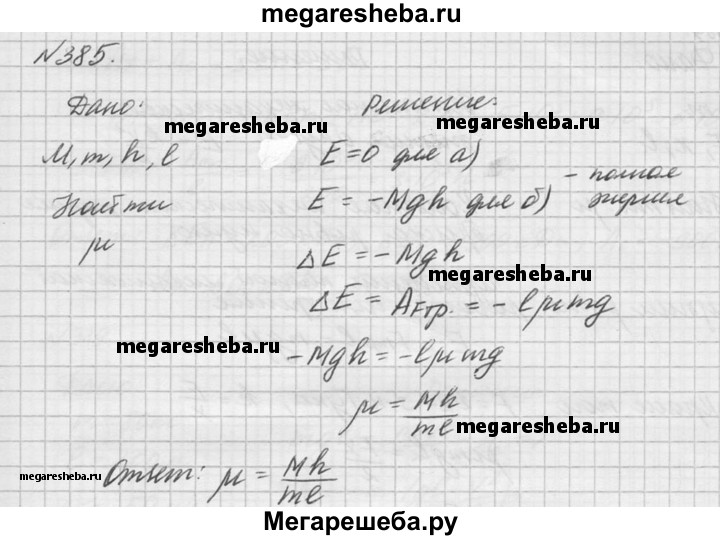 megaresheba.ru
№385.
Дано:
Решение:
megaresheba.ru
megaresheba.ru
M, m, h, l
E = 0 для а)
Найти
E = -Mgh для б) - полная энергия
μ
ΔE = -Mgh
megaresheba.ru
ΔE = AFтр. = -lμmg
megaresheba.ru
-Mgh = -lμmg
μ = Mh/ml
megaresheba.ru
megaresheba.ru
Ответ: μ = Mh/ml
Мегарешеба.ру